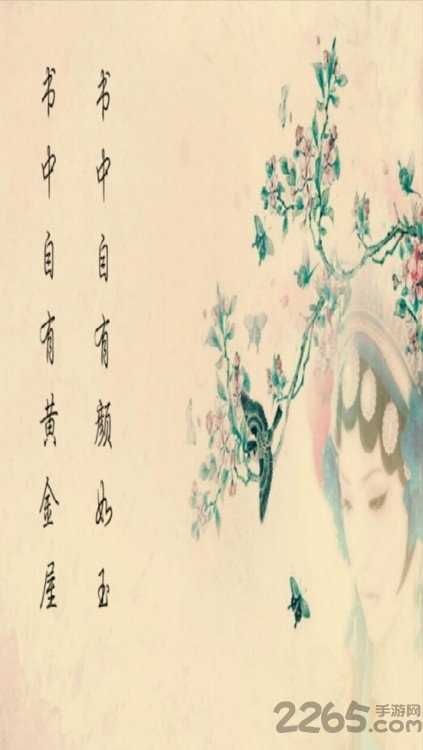 书中自有颜如玉
书中自有黄金屋
2265手游网
.COM